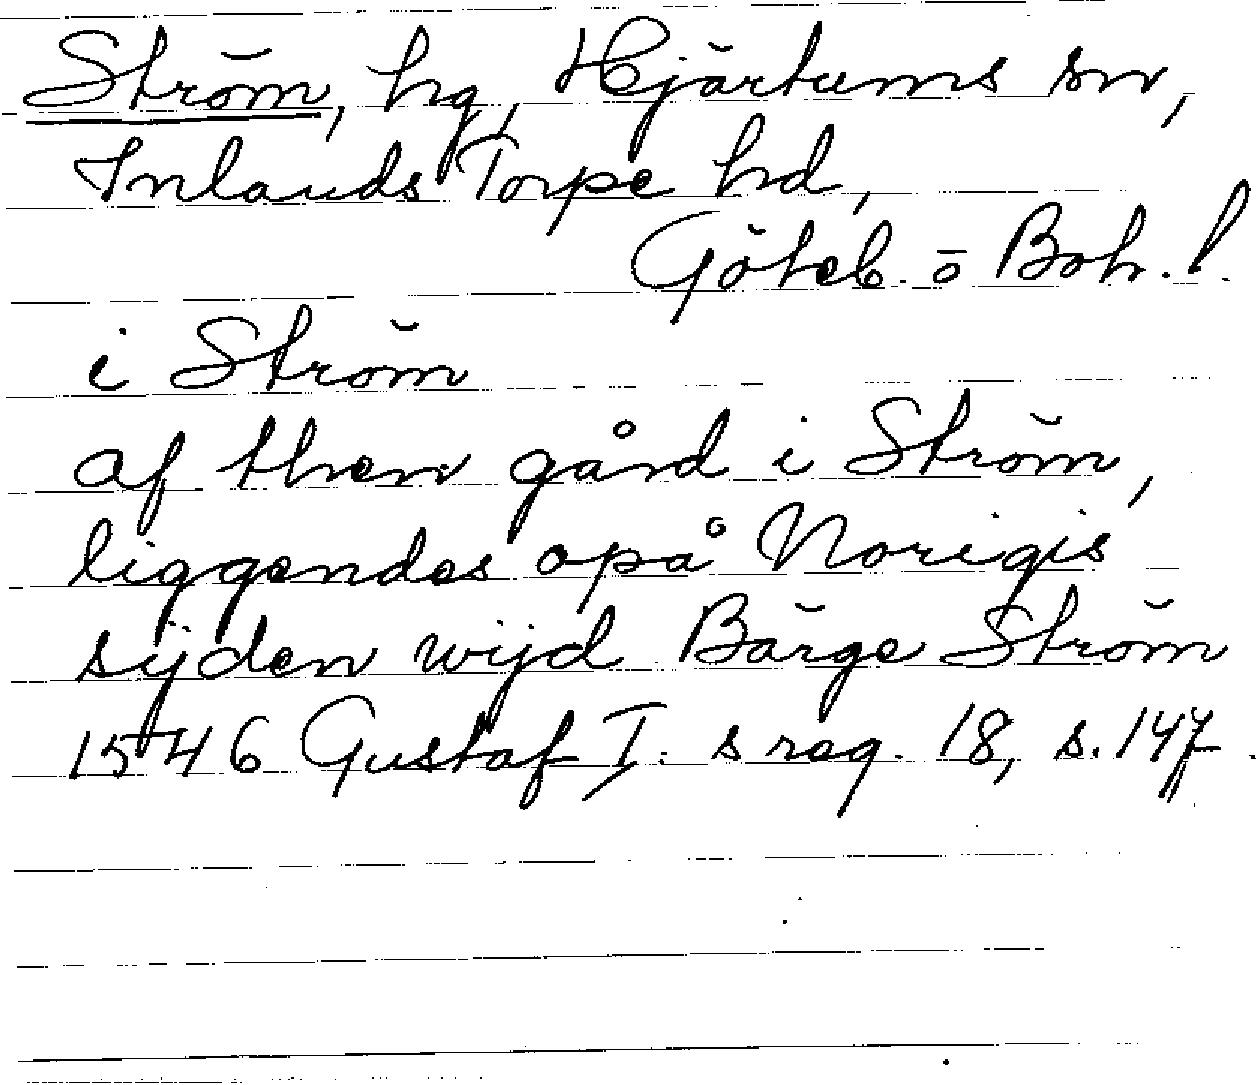 Ström, hg, Hjärtums sn,
Inlands Torpe hd,
Göteb. o Boh. l.
i Ström
af then gård i Ström,
liggendes opå Norigis
sijden wijd Bärge Ström
1546 Gustaf I:s reg. 18, s. 147.